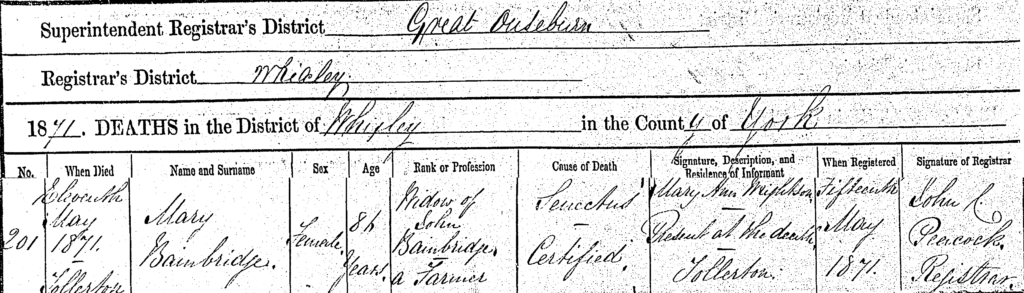 Superintendent Registrar's District Great Ouseburn
Registrar's District Whixley
1871. DEATHS in the District of Whixley in the County of York
No. When Died Name and Surname Sex Age Rank or Profession Cause of Death Signature, Description, and Residence of Informant When Registered Signature of Registrar
201 Eleventh May 1871. Tollerton
Mary Bainbridge.
Female.
Years.
Widow of John Bainbridge. a Farmer
Senectus Certified.
Mary Ann Present at the death Tollerton.
Fifteenth May 1871.
John C. Peacock. Registrar.